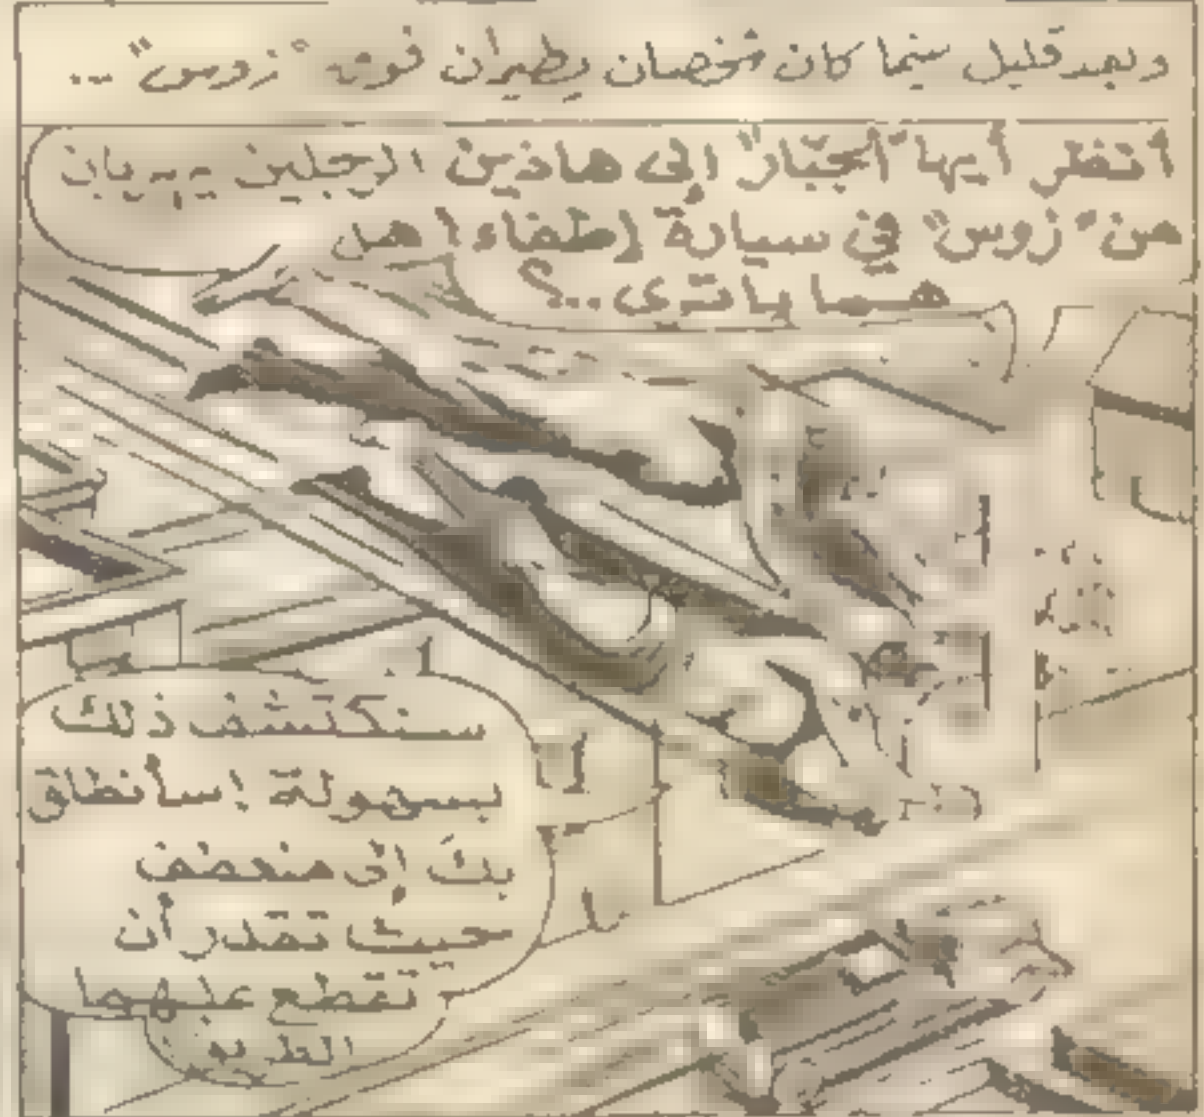 وبعد قليل بينما كان شخصان يطيران فوق "زوس" ..
أتنظر أيها "الجبّار" إلى هاذين الرجلين يهربان
من "زوس" في سيارة إطفاء! هل
هما يا ترى ..؟
سنكتشف ذلك
بسهولة! سأنطلق
بك إلى منخفض
حيث تقدر أن
تقطع عليهما
الطريق!